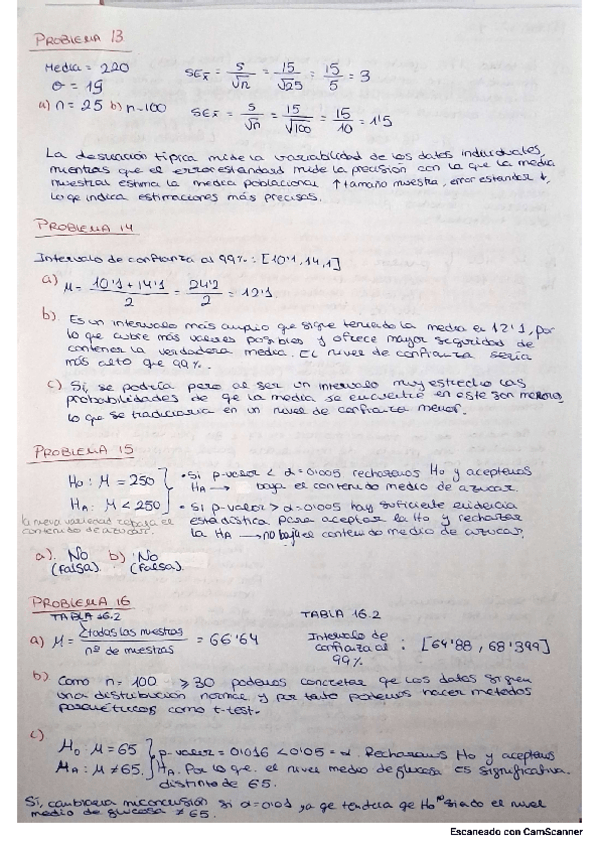 PROBLEMA 13
Media = 220
σ = 19
a) n = 25 b) n=100
SEx̄ = s/√n = 15/√25 = 15/5 = 3
SEx̄ = s/√n = 15/√100 = 15/10 = 1'5
La desviación típica mide la variabilidad de los datos individuales,
mientras que el error estándard mide la precisión con la que la media
muestral estima la media poblacional. ↑ tamaño muestra, error estándar ↓,
lo que indica estimaciones más precisas.
PROBLEMA 14
Intervalo de confianza al 99% : [10'1, 14,1]
a) μ = 10'1 + 14'1 / 2 = 24'2 / 2 = 12'1
b) Es un intervalo más amplio que sigue teniendo la media en 12'1, por
lo que cubre más valores posibles y ofrece mayor seguridad de
contener la verdadera media. El nivel de confianza sería
más alto que 99%.
c) Sí, se podría pero al ser un intervalo muy estrecho las
probabilidades de que la media se encuentre en este son menores,
lo que se traduciría en un nivel de confianza menor.
PROBLEMA 15
H₀ : μ = 250
HA : μ < 250
la nueva variedad rebaja el
contenido de azúcar.
• Si p-valor < α = 0'005 rechazamos H₀ y aceptamos
HA → baja el contenido medio de azúcar.
• Si p-valor > α = 0'005 hay suficiente evidencia
estadística para aceptar la H₀ y rechazar
la HA → no baja el contenido medio de azúcar.
a). No (Falsa). b) No (Falsa).
PROBLEMA 16
TABLA 16.2
a) μ = Σtodas las muestras / nº de muestras = 66'64
TABLA 16.2
Intervalo de
confianza al : [64'88, 68'399]
99%
b) Como n = 100 ≥ 30 podemos concretar que los datos siguen
una distribución normal y por tanto podemos hacer métodos
paramétricos como t-test.
c) H₀ : μ = 65
HA : μ ≠ 65.
p-valor = 0'016 < 0'05 = α. Rechazamos H₀ y aceptamos
HA. Por lo que el nivel medio de glucosa es significativa.
distinto de 65.
Sí, cambiaría mi conclusión si α = 0'01, ya que tendría que H₀ siendo el nivel
medio de glucosa ≠ 65.
Escaneado con CamScanner